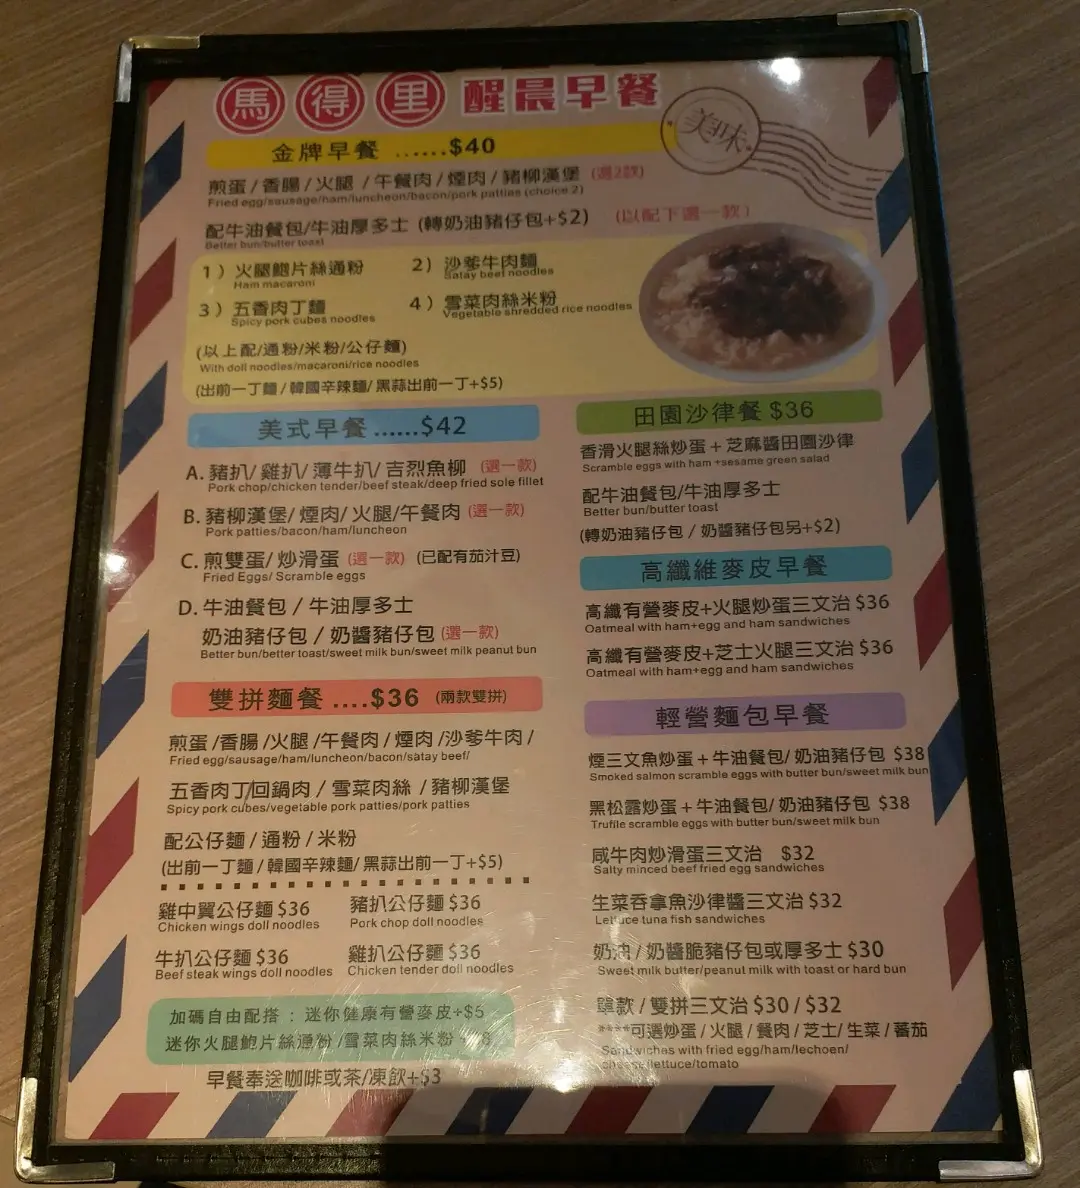 馬得里 醒晨早餐
美味
金牌早餐 ......$40
煎蛋/香腸/火腿 /午餐肉/煙肉/豬柳漢堡 (選2款)
Fried egg/sausage/ham/luncheon/bacon/pork patties (choice 2)
配牛油餐包/牛油厚多士 (轉奶油豬仔包+$2) (以配下選一款)
Better bun/butter toast
1) 火腿鮑片絲通粉
Ham macaroni
2) 沙爹牛肉麵
Satay beef noodles
3) 五香肉丁麵
Spicy pork cubes noodles
4) 雪菜肉絲米粉
Vegetable shredded rice noodles
(以上配/通粉/米粉/公仔麵)
With doll noodles/macaroni/rice noodles
(出前一丁麵/韓國辛辣麵/黑蒜出前一丁+$5)
美式早餐......$42
A. 豬扒/雞扒/薄牛扒/吉烈魚柳 (選一款)
Pork chop/chicken tender/beef steak/deep fried sole fillet
B. 豬柳漢堡/煙肉/火腿/午餐肉 (選一款)
Pork patties/bacon/ham/luncheon
C. 煎雙蛋/炒滑蛋 (選一款) (已配有茄汁豆)
Fried Eggs/ Scramble eggs
D. 牛油餐包 / 牛油厚多士
奶油豬仔包 / 奶醬豬仔包 (選一款)
Better bun/better toast/sweet milk bun/sweet milk peanut bun
雙拼麵餐 ....$36 (兩款雙拼)
煎蛋/香腸/火腿/午餐肉/煙肉/沙爹牛肉/
Fried egg/sausage/ham/luncheon/bacon/satay beef/
五香肉丁/回鍋肉 / 雪菜肉絲 / 豬柳漢堡
Spicy pork cubes/vegetable pork patties/pork patties
配公仔麵/通粉/米粉
(出前一丁麵/韓國辛辣麵/黑蒜出前一丁+$5)
雞中翼公仔麵 $36
Chicken wings doll noodles
豬扒公仔麵 $36
Pork chop doll noodles
牛扒公仔麵 $36
Beef steak wings doll noodles
雞扒公仔麵 $36
Chicken tender doll noodles
加碼自由配搭：迷你健康有營麥皮+$5
迷你火腿鮑片絲通粉/雪菜肉絲米粉 8
早餐奉送咖啡或茶/凍飲+$3
田園沙律餐 $36
香滑火腿絲炒蛋 + 芝麻醬田園沙律
Scramble eggs with ham +sesame green salad
配牛油餐包/牛油厚多士
Better bun/butter toast
(轉奶油豬仔包 / 奶醬豬仔包另+$2)
高纖維麥皮早餐
高纖有營麥皮+火腿炒蛋三文治 $36
Oatmeal with ham+egg and ham sandwiches
高纖有營麥皮+芝士火腿三文治 $36
Oatmeal with ham+egg and ham sandwiches
輕營麵包早餐
煙三文魚炒蛋 + 牛油餐包/ 奶油豬仔包 $38
Smoked salmon scramble eggs with butter bun/sweet milk bun
黑松露炒蛋 + 牛油餐包/ 奶油豬仔包 $38
Truffle scramble eggs with butter bun/sweet milk bun
咸牛肉炒滑蛋三文治 $32
Salty minced beef fried egg sandwiches
生菜吞拿魚沙律醬三文治 $32
Lettuce tuna fish sandwiches
奶油/奶醬脆豬仔包或厚多士 $30
Sweet milk butter/peanut milk with toast or hard bun
單款/雙拼三文治 $30 / $32
****可選炒蛋/火腿/餐肉/芝士/生菜/蕃茄
Sandwiches with fried egg/ham/lechoen/
cheese/lettuce/tomato